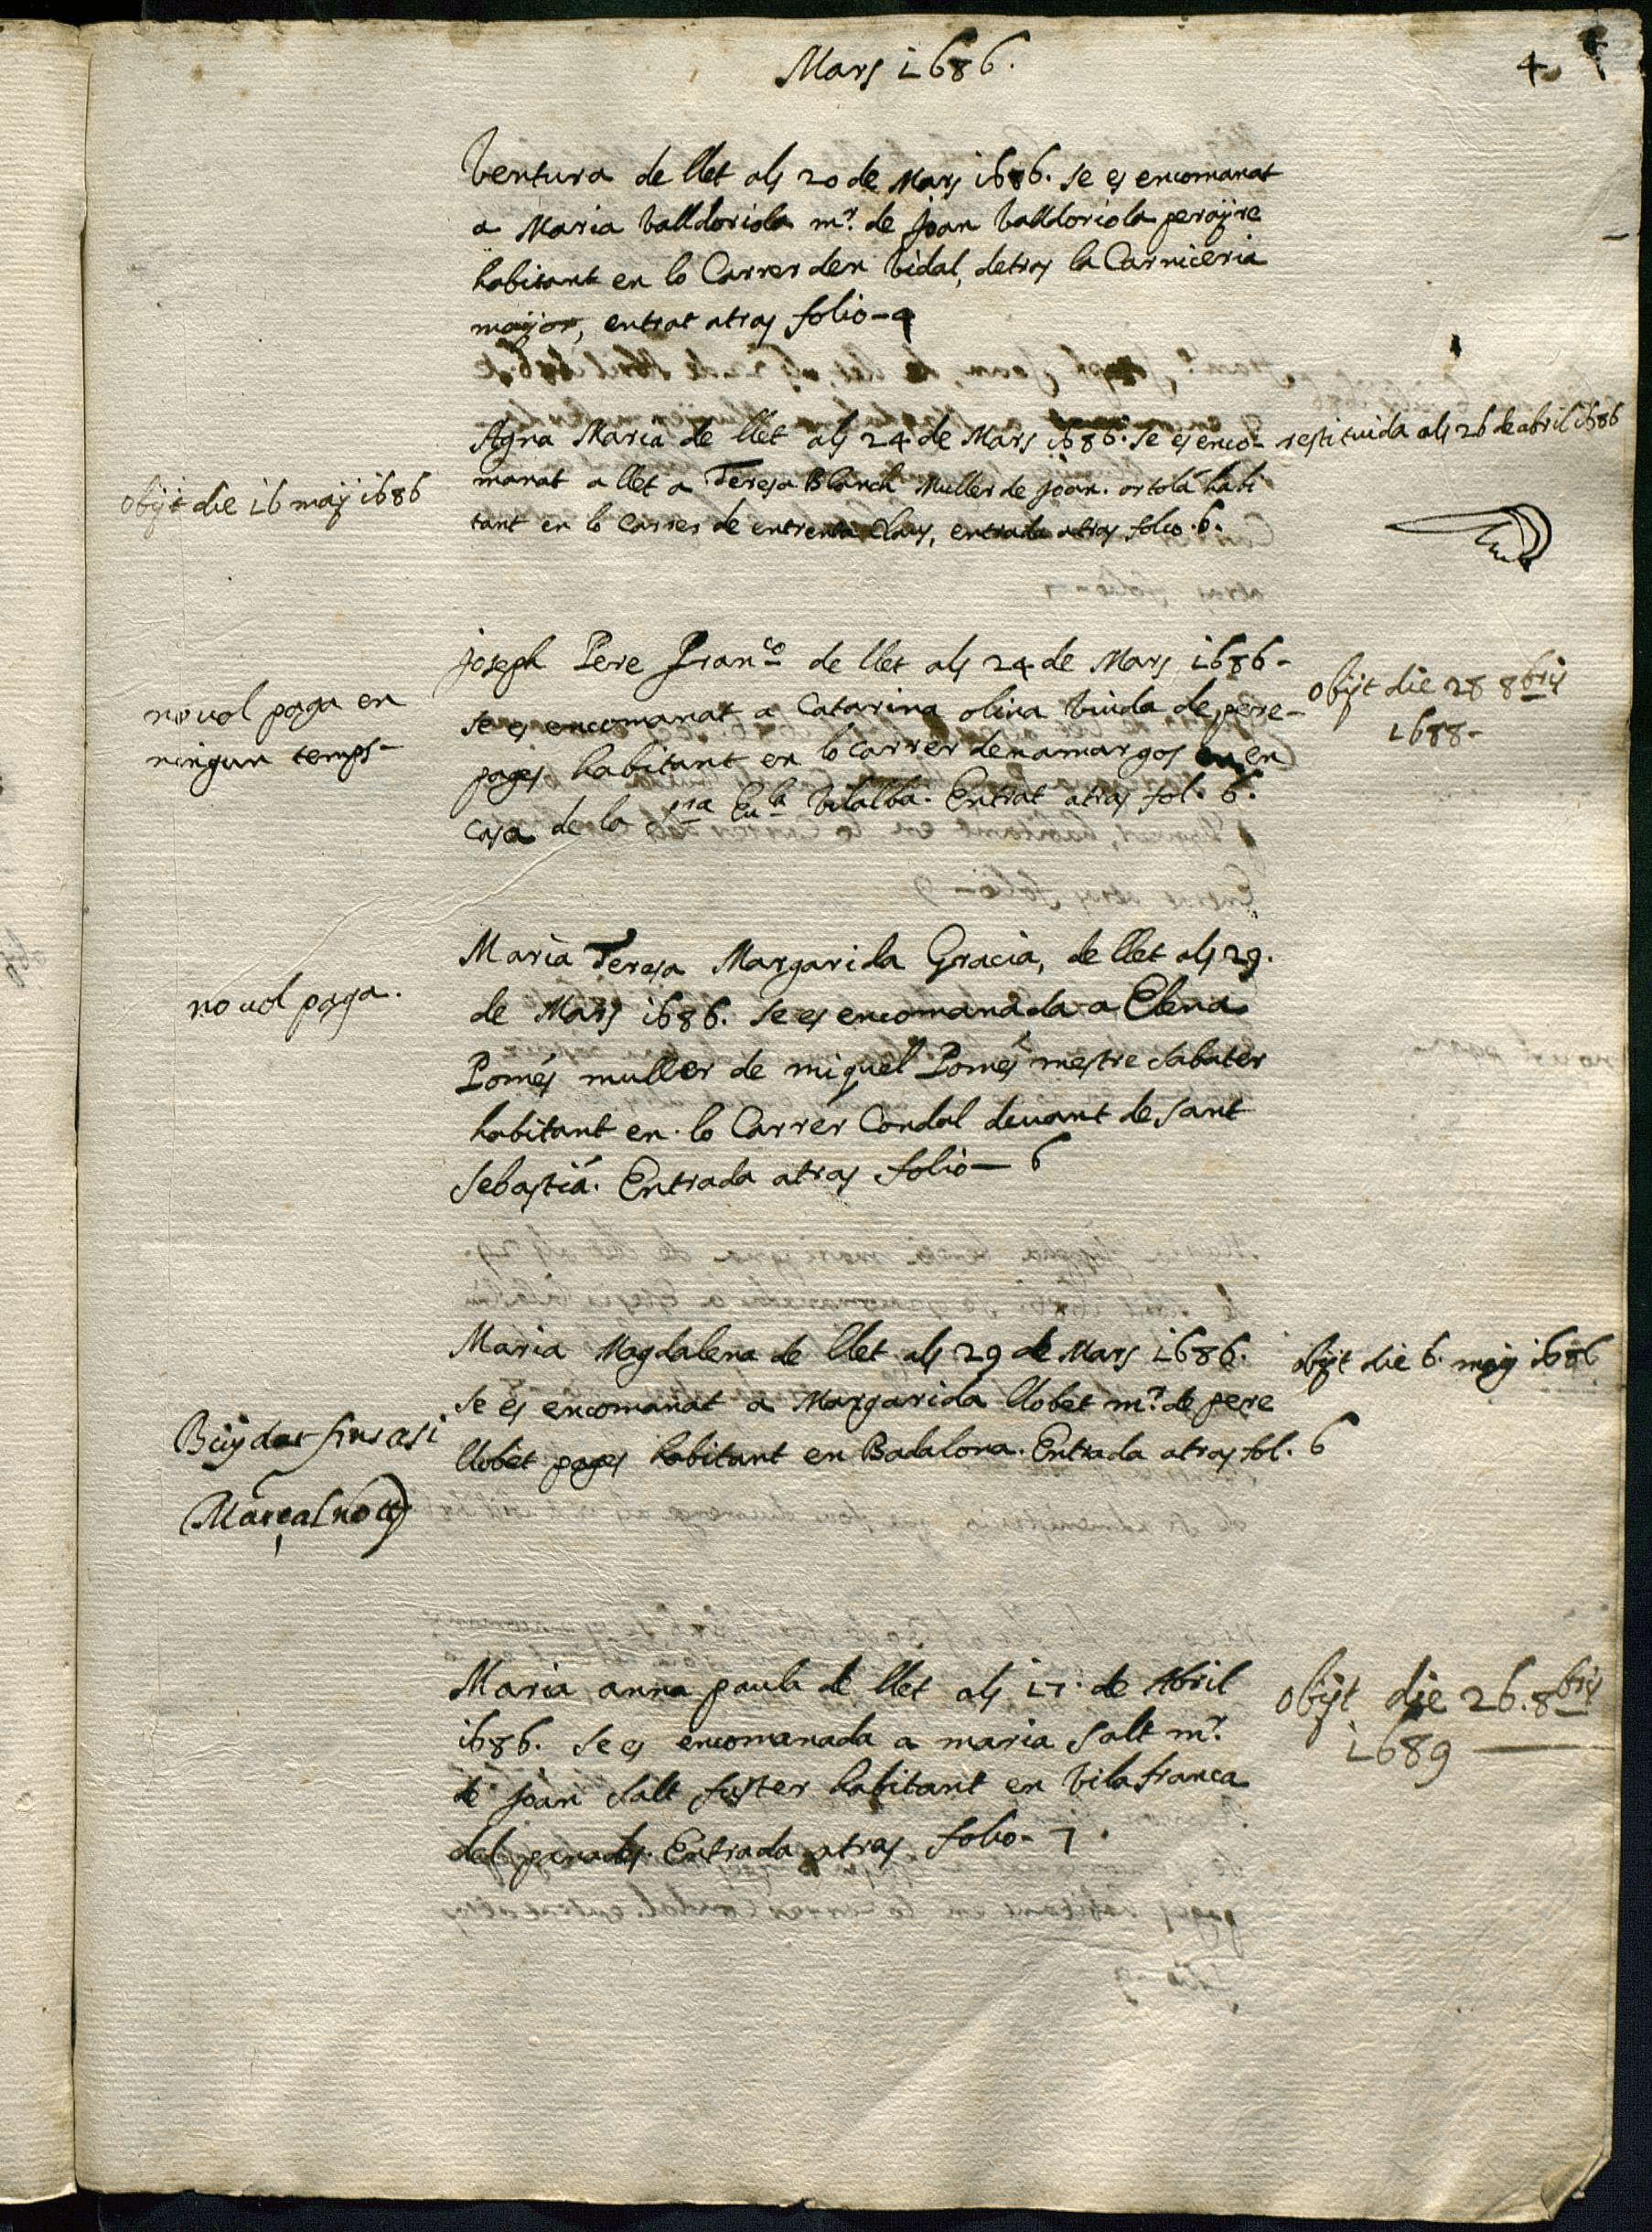 Mars 1686.
4
Ventura de llet als 20 de Mars 1686. se es encomanat
a Maria Valldoriola mr. de Joan Valldoriola perayre
habitant en lo Carrer den Vidal, detras la Carniceria
major, entrat atras folio - 4
Agna Maria de llet als 24 de Mars 1686. se es enco-
manat a llet a Teresa Blanch Muller de Joan ortolá habi
tant en lo Carrer de entrenta Claus, entrada atras folio .6.
restituida als 26 de abril 1686
obijt die 16 maij 1686
Joseph Pere Franco de llet als 24 de Mars 1686 -
se es encomanat a Catarina oliva Viuda de pere -
pages habitant en lo carrer denamargos en
casa de la sra Eula Vilalba. Entrat atras fol. 6.
no vol paga en
ningun temps -
obijt die 28 8bris
1688 -
Maria Teresa Margarida Gracia, de llet als 29.
de Mars 1686. se es encomanada a Elena
Pomés muller de miquel Pomés mestre sabater
habitant en lo Carrer Condal devant de sant
Sebastiá. Entrada atras folio - 6
no vol paga.
Maria Magdalena de llet als 29 de Mars 1686.
se es encomanat a Margarida llobet mr. de pere
llobet pages habitant en Badalona. Entrada atras fol. 6
obijt die 6. maij 1686
fins asi
Marçal nott
Maria anna paula de llet als 17. de Abril
1686. se es encomanada a maria Salt mr.
de Joan Salt fuster habitant en Vilafranca
del panades. Entrada atras folio - 7.
obijt die 26. 8bris
1689